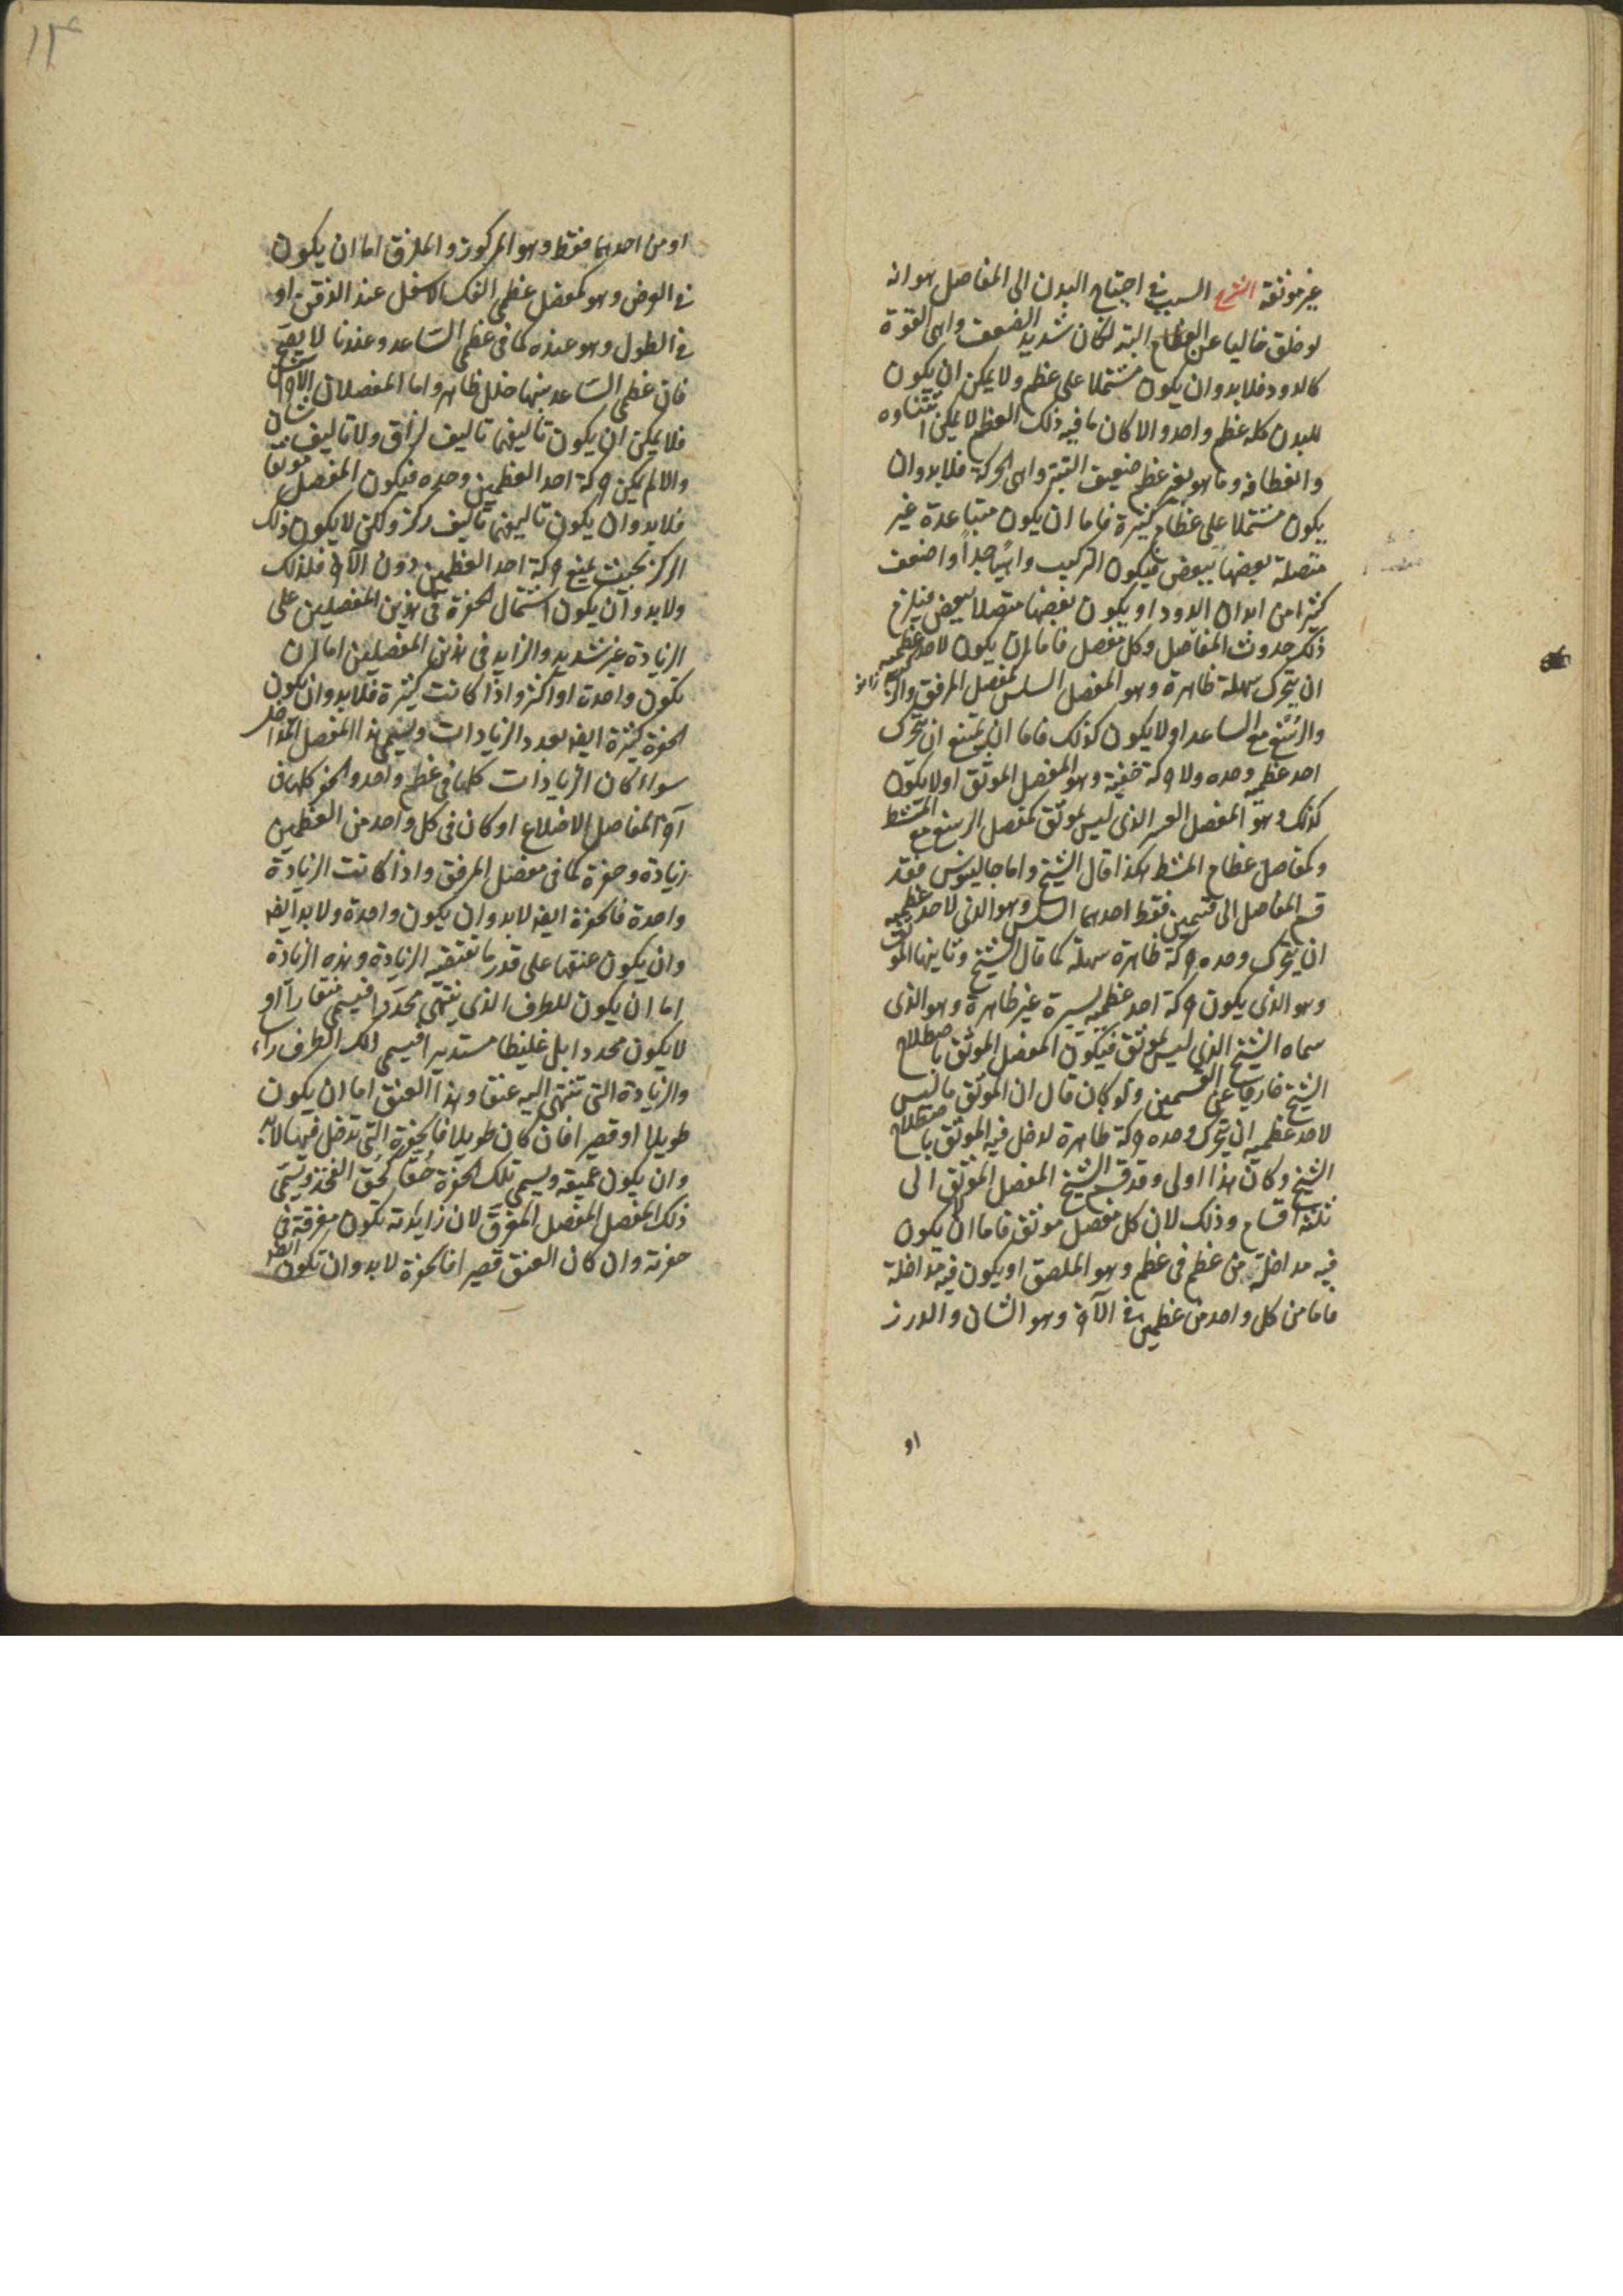 غير موثقة الشرح السبب في احتياج البدن الى المفاصل هو انه
لو خلق خاليا عن العظام البتة لكان شديد الضعف واهى القوة
كالدود فلابد وان يكون مشتملا على عظم ولا يمكن ان يكون
للبدن كله عظم واحد والا كان ما فيه ذلك العظم لا يمكن انثناوه
وانعطافه وما هو بغير عظم ضعيف البتة واهى الحركة فلابد وان
يكون مشتملا على عظام كثيرة فاما ان يكون متباعدة غير
متصلة بعضها ببعض فيكون التركيب واهيا جدا واضعف
كثيرا من ابدان الدود او يكون بعضها متصلا ببعض فيلزم
ذلك حدوث المفاصل وكل مفصل فاما ان يكون لاحد عظميه
ان يتحرك سهلة ظاهرة وهو المفصل السلس كمفصل المرفق
والرسغ مع الساعد او لا يكون كذلك فاما ان يمتنع ان يتحرك
احد عظميه وحده ولا حركة خفية وهو المفصل الموثق او لا يكون
كذلك وهو المفصل العسر الذى ليس بموثق كمفصل الرسغ مع المشط
وكمفاصل عظام المشط هكذا قال الشيخ واما جالينوس فقد
قسم المفاصل الى قسمين فقط احدهما السلس وهو الذى لاحد عظميه
ان يتحرك وحده حركة ظاهرة سهلة كما قال الشيخ وثانيهما الموثق
وهو الذى يكون حركة احد عظميه يسيرة غير ظاهرة وهو الذى
سماه الشيخ الذى ليس بموثق فيكون المفصل الموثق باصطلاح
الشيخ خارجا عن القسمين ولو كان قال ان الموثق ما ليس
لاحد عظميه ان يتحرك وحده حركة ظاهرة لدخل فيه الموثق باصطلاح
الشيخ وكان هذا اولى وقد قسم الشيخ المفصل الموثق الى
ثلثة اقسام وذلك لان كل مفصل موثق فاما ان لا يكون
فيه مداخلة من عظم فى عظم وهو الملصق او يكون فيه مداخلة
فاما من كل واحد من عظمين في الآخر وهو الشان والدرز
او
١٣
او من احدهما فقط وهو المركوز والملزق اما ان يكون
في العرض وهو كمفصل عظمى الفك الاسفل عند الذقن او
في الطول وهو عنده كما فى عظمى الساعد وعندنا لا يصح
فان عظمى الساعد بينهما خلل ظاهر واما المفصلان الآخران
فلا يمكن ان يكون تاليفهما تاليف لزاق ولا تاليف شان
والا لم يمكن حركة احد العظمين وحده فيكون المفصل موثقا
فلابد وان يكون تاليفهما تاليف ركز ولكن لا يكون ذلك
الركز بحيث يمنع حركة احد العظمين دون الآخر فلذلك
ولابد وان يكون اشتمال الحفرة فى هذين المفصلين على
الزيادة غير شديد والزايد فى هذين المفصلين اما ان
تكون واحدة او اكثر واذا كانت كثيرة فلابد وان يكون
الحفرة كثيرة ايضا بعدد الزيادات ويسمى هذا المفصل المداخل
سواء كان الزيادات كلها فى عظم واحد والحفر كلها فى
آخر كمفاصل الاضلاع او كان فى كل واحد من العظمين
زيادة وحفرة كما فى مفصل المرفق واذا كانت الزيادة
واحدة فالحفرة ايضا لابد وان يكون واحدة ولابد ايضا
وان يكون عنقها على قدر ما تقتضيه الزيادة وهذه الزيادة
اما ان يكون للطرف الذى ينتهى محددا فيسمى منقارا او
لا يكون محددا بل غليظا مستديرا فيسمى ذلك الطرف راسا
والزيادة التى تنتهى اليه عنقا وهذا العنق اما ان يكون
طويلا او قصيرا فان كان طويلا فالحفرة التى تدخل فيها لابد
وان يكون عميقه ويسمى تلك الحفرة حقا كحق الفخذ ويسمى
ذلك المفصل المفصل المغرق لان زايدته تكون مغرقة فى
حفرته وان كان العنق قصيرا فالحفرة لابد وان تكون ايضا